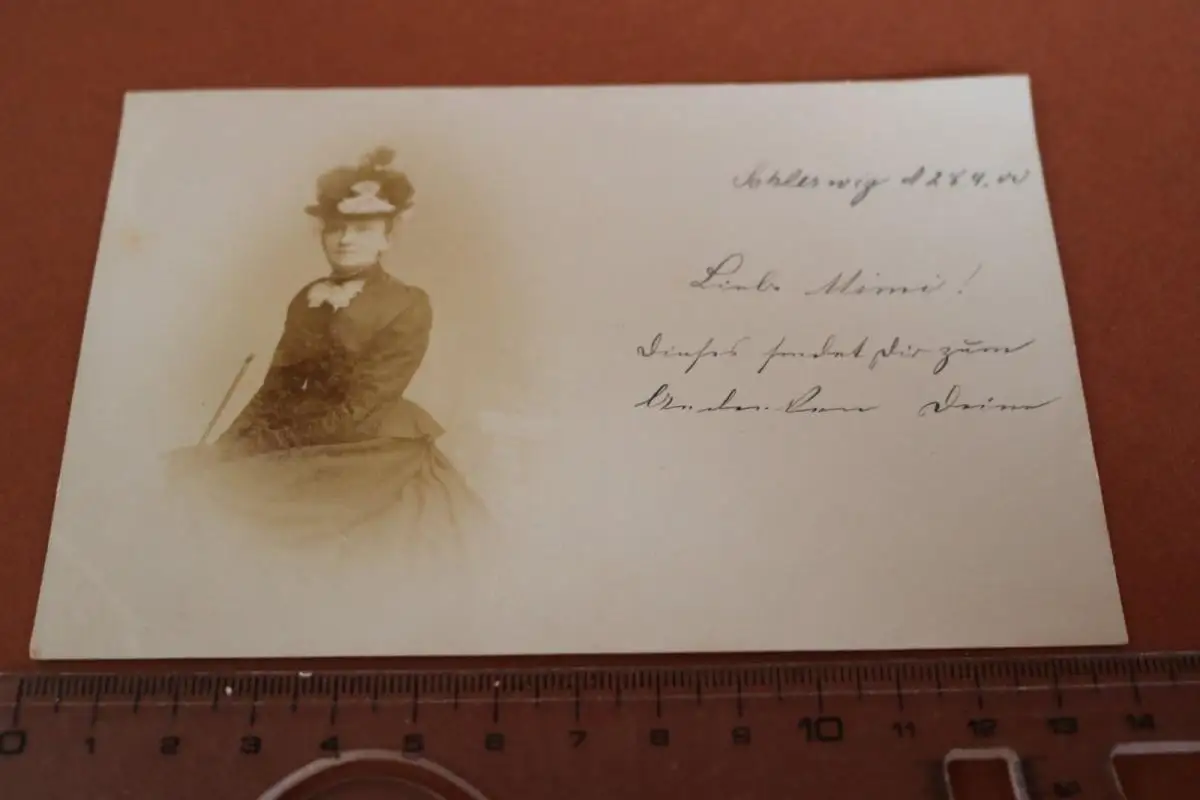 Schleswig d 28 4. 00
Liebe Mimi!
Dieses sendet Dir zum
Andenken Deine
0 1 2 3 4 5 6 7 8 9 10 11 12 13 14